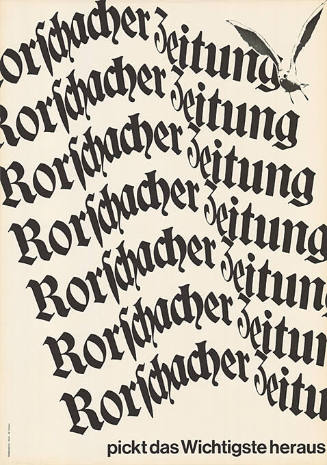 Rorschacher Zeitung
Rorschacher Zeitung
Rorschacher Zeitung
Rorschacher Zeitung
Rorschacher Zeitun
Rorschacher Zeitun
Rorschacher Zeitu
pickt das Wichtigste heraus